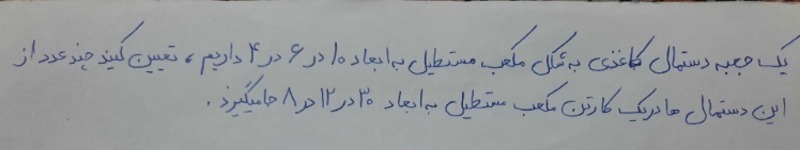 یک جعبه دستمال کاغذی به شکل مکعب مستطیل به ابعاد ۱۰ در ۶ در ۴ داریم ، تعیین کنید چند عدد از
این دستمال ها در یک کارتن مکعب مستطیل به ابعاد ۳۰ در ۱۲ در ۸ جا میگیرد .